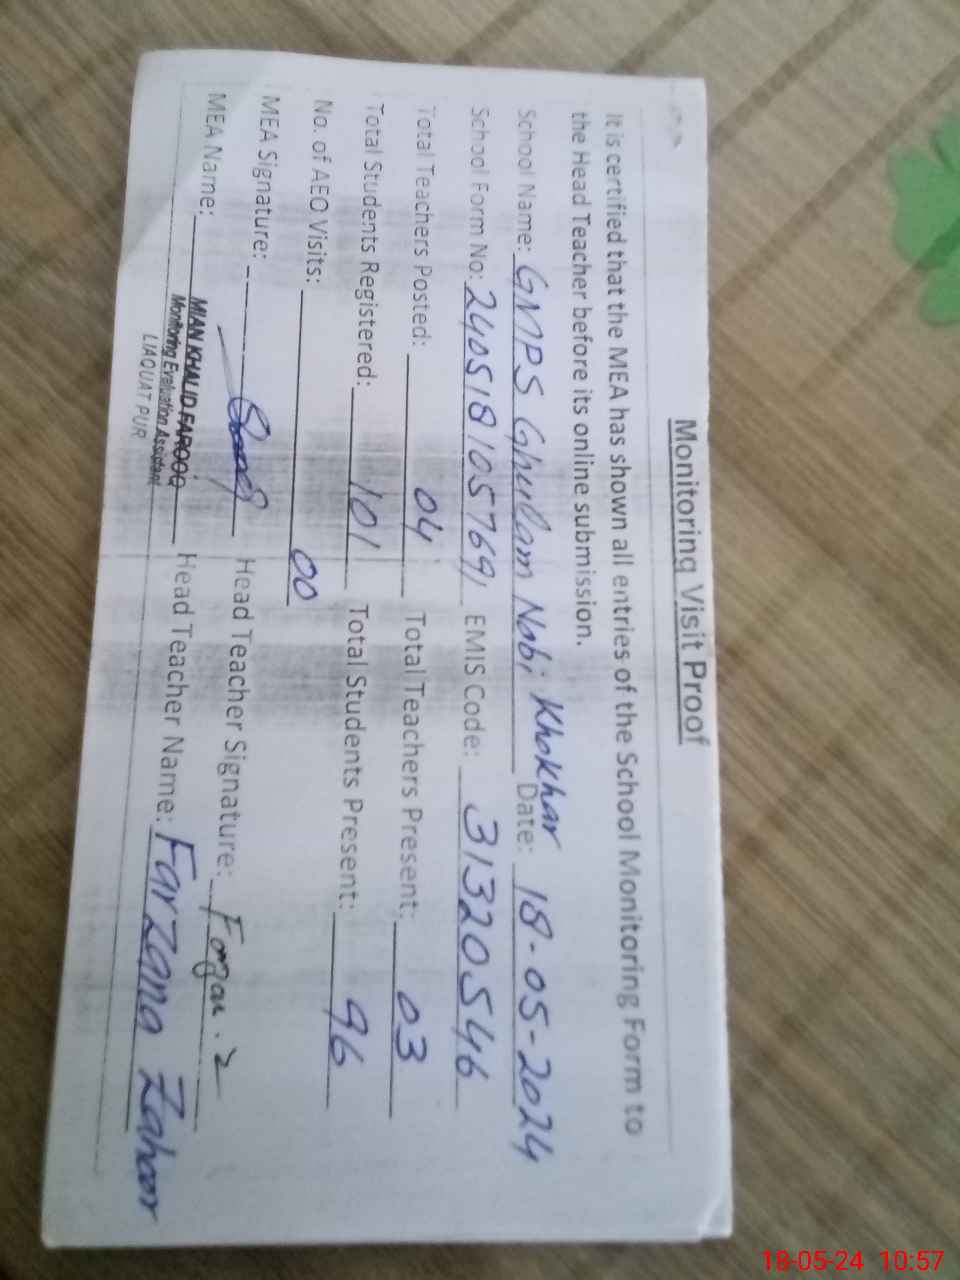 Monitoring Visit Proof
It is certified that the MEA has shown all entries of the School Monitoring Form to
the Head Teacher before its online submission.
School Name: GMPS Ghulam Nabi Khokhar Date: 18-05-2024
School Form No: 240518105769 EMIS Code: 31320546
Total Teachers Posted: 04 Total Teachers Present: 03
Total Students Registered: 101 Total Students Present: 96
No. of AEO Visits: 00
MEA Signature: Head Teacher Signature:
MEA Name: MIAN KHALID FAROOQ Head Teacher Name: Farzana Zahoor
Monitoring Evaluation Assistant
LIAQUAT PUR
18-05-24 10:57